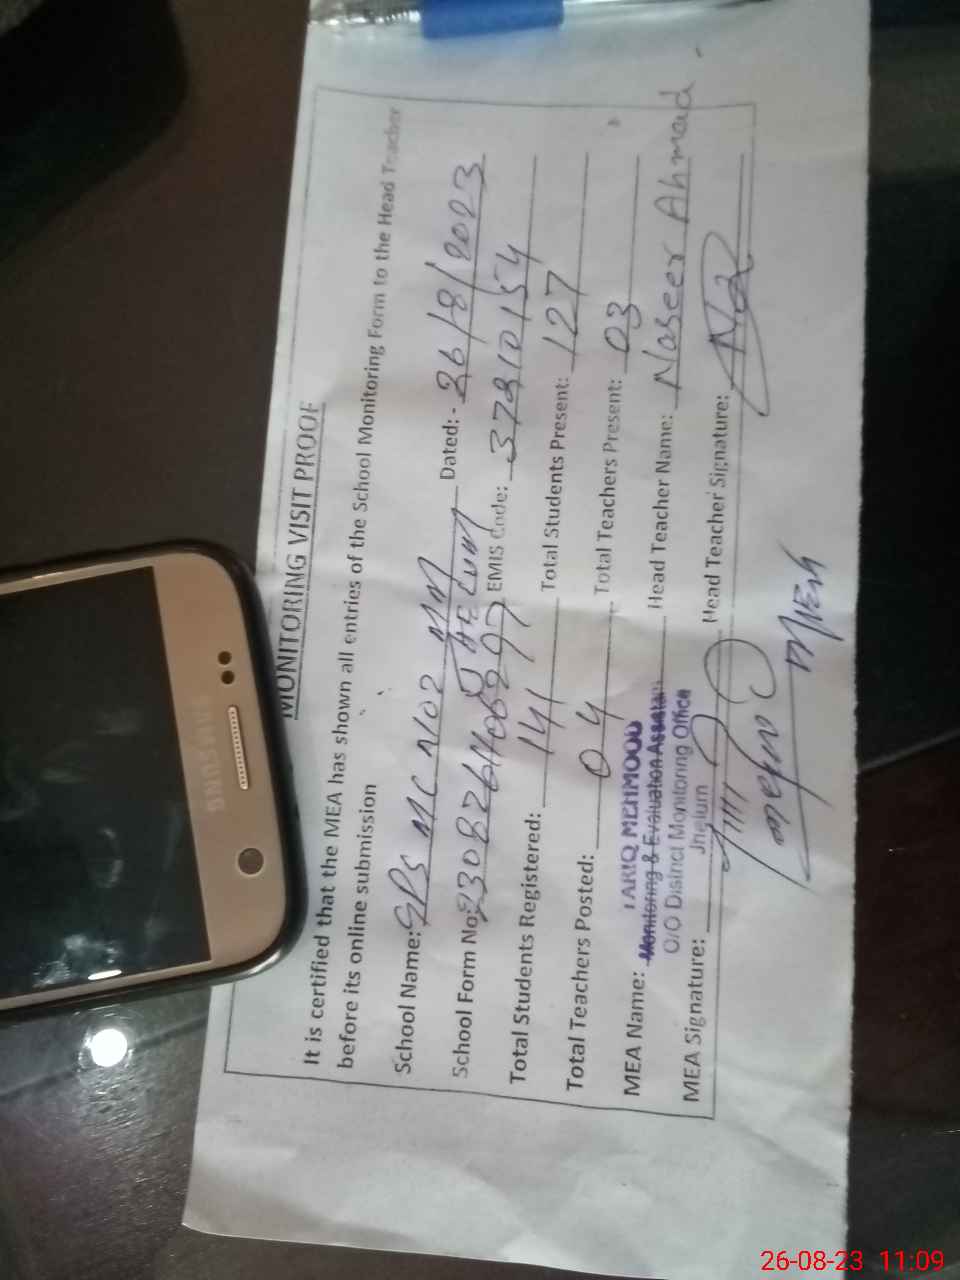 MONITORING VISIT PROOF
It is certified that the MEA has shown all entries of the School Monitoring Form to the Head Teacher
before its online submission
School Name: GPS MC NO2 JHELUM Dated: - 26/8/2023
School Form No: EMIS Code: 37210154
Total Students Registered: 141 Total Students Present: 127
Total Teachers Posted: 04 Total Teachers Present: 03
MEA Name: TARIQ MEHMOOD Head Teacher Name: Naseer Ahmad
Monitoring & Evaluation Assistant
O/O District Monitoring Office
Jhelum
MEA Signature: Head Teacher Signature:
MEA
SAMSUNG
26-08-23 11:09